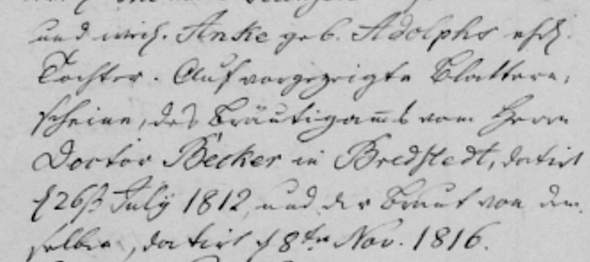 und weil. Anke geb. Adolphs ehel.
Tochter. Auf vorgezeigte Blattern,
scheine, des Bräutigams vom Herrn
Doctor Becker in Bredstedt, datirt
d 26st July 1812, und der Braut von dem,
selben, datirt d 8ten Nov. 1816.